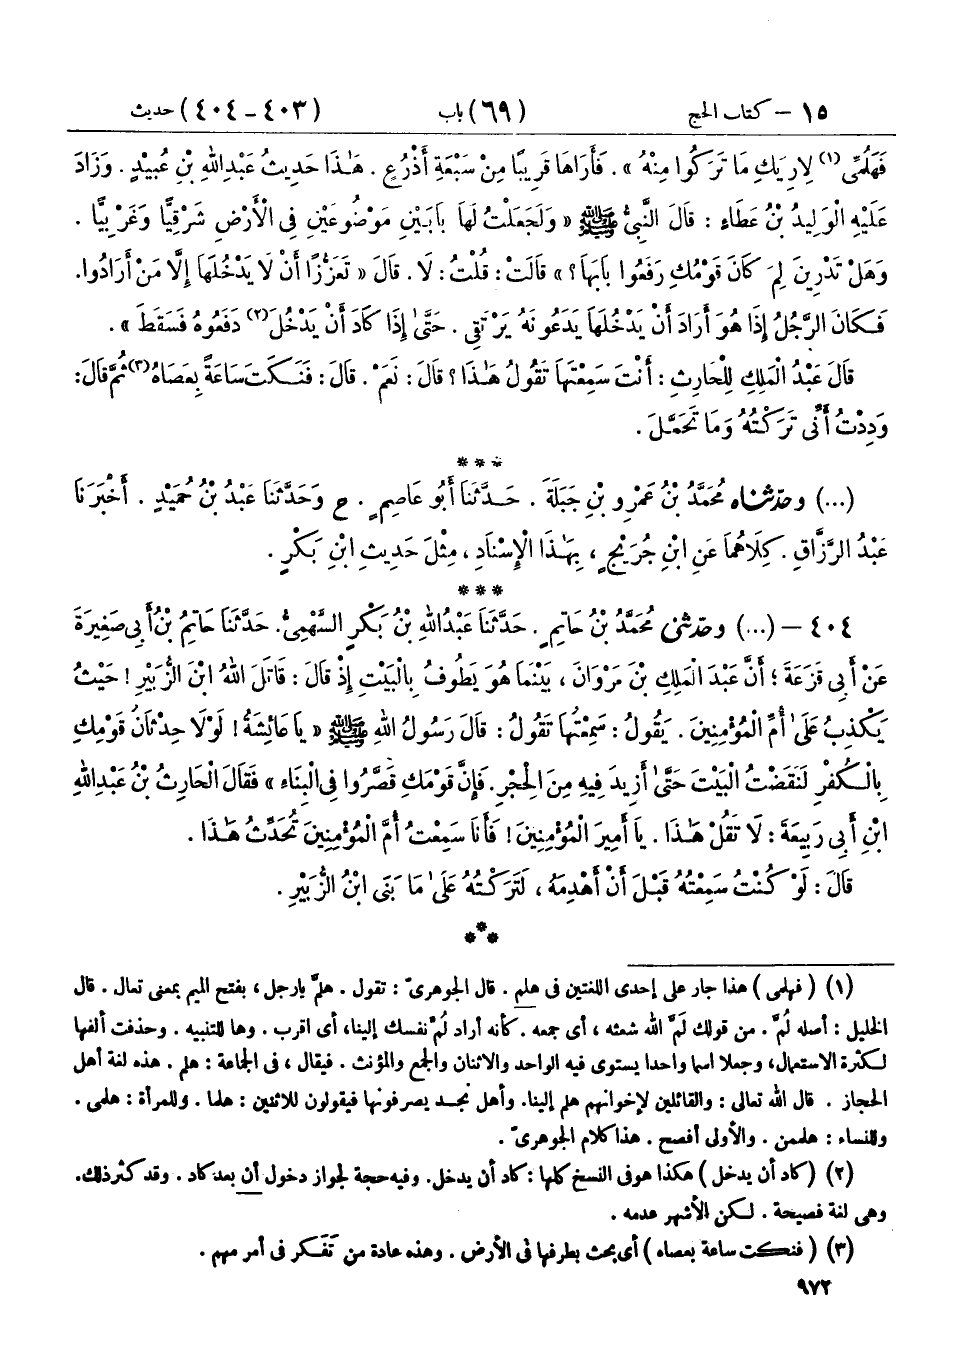 ١٥ – كتاب الحج (٦٩) باب (٤٠٣ – ٤٠٤) حديث
فَهَلُمِّى (١) لِأُرِيَكِ مَا تَرَكُوا مِنْهُ » . فَأَرَاهَا قَرِيبًا مِنْ سَبْعَةِ أَذْرُعٍ . هَٰذَا حَدِيثُ عَبْدِ اللهِ بْنِ عُبَيْدٍ . وَزَادَ
عَلَيْهِ الْوَلِيدُ بْنُ عَطَاءٍ : قَالَ النَّبِيُّ ﷺ « وَلَجَعَلْتُ لَهَا بَابَيْنِ مَوْضُوعَيْنِ فِى الْأَرْضِ شَرْقِيًّا وَغَرْبِيًّا .
وَهَلْ تَدْرِينَ لِمَ كَانَ قَوْمُكِ رَفَعُوا بَابَهَا ؟ » قَالَتْ : قُلْتُ : لَا . قَالَ « تَعَزُّزًا أَنْ لَا يَدْخُلَهَا إِلَّا مَنْ أَرَادُوا .
فَكَانَ الرَّجُلُ إِذَا هُوَ أَرَادَ أَنْ يَدْخُلَهَا يَدَعُونَهُ يَرْتَقِى . حَتَّىٰ إِذَا كَادَ أَنْ يَدْخُلَ (٢) دَفَعُوهُ فَسَقَطَ » .
قَالَ عَبْدُ الْمَلِكِ لِلْحَارِثِ : أَنْتَ سَمِعْتَهَا تَقُولُ هَٰذَا ؟ قَالَ : نَعَمْ . قَالَ : فَنَكَتَ سَاعَةً بِعَصَاهُ (٣) ثُمَّ قَالَ :
وَدِدْتُ أَنِّى تَرَكْتُهُ وَمَا تَحَمَّلَ .
***
(...) وحَدَّثَنَاه مُحَمَّدُ بْنُ عَمْرِو بْنِ جَبَلَةَ . حَدَّثَنَا أَبُو عَاصِمٍ . ح وَحَدَّثَنَا عَبْدُ بْنُ حُمَيْدٍ . أَخْبَرَنَا
عَبْدُ الرَّزَّاقِ . كِلَاهُمَا عَنِ ابْنِ جُرَيْجٍ ، بِهَٰذَا الْإِسْنَادِ ، مِثْلَ حَدِيثِ ابْنِ بَكْرٍ .
***
٤٠٤ – (...) وحَدَّثَنِى مُحَمَّدُ بْنُ حَاتِمٍ . حَدَّثَنَا عَبْدُ اللهِ بْنُ بَكْرٍ السَّهْمِىُّ . حَدَّثَنَا حَاتِمُ بْنُ أَبِى صَغِيرَةَ
عَنْ أَبِى قَزَعَةَ ؛ أَنَّ عَبْدَ الْمَلِكِ بْنَ مَرْوَانَ ، بَيْنَمَا هُوَ يَطُوفُ بِالْبَيْتِ إِذْ قَالَ : قَاتَلَ اللهُ ابْنَ الزُّبَيْرِ ! حَيْثُ
يَكْذِبُ عَلَىٰ أُمِّ الْمُؤْمِنِينَ . يَقُولُ : سَمِعْتُهَا تَقُولُ : قَالَ رَسُولُ اللهِ ﷺ « يَا عَائِشَةُ ! لَوْلَا حِدْثَانُ قَوْمِكِ
بِالْكُفْرِ لَنَقَضْتُ الْبَيْتَ حَتَّىٰ أَزِيدَ فِيهِ مِنَ الْحِجْرِ . فَإِنَّ قَوْمَكِ قَصَّرُوا فِى الْبِنَاءِ » فَقَالَ الْحَارِثُ بْنُ عَبْدِ اللهِ
ابْنِ أَبِى رَبِيعَةَ : لَا تَقُلْ هَٰذَا . يَا أَمِيرَ الْمُؤْمِنِينَ ! فَأَنَا سَمِعْتُ أُمَّ الْمُؤْمِنِينَ تُحَدِّثُ هَٰذَا .
قَالَ : لَوْ كُنْتُ سَمِعْتُهُ قَبْلَ أَنْ أَهْدِمَهُ ، لَتَرَكْتُهُ عَلَىٰ مَا بَنَى ابْنُ الزُّبَيْرِ .
***
(١) ( فهلمى ) هذا جار على إحدى اللغتين فى هلم . قال الجوهرىّ : تقول . هلمّ يا رجل ، بفتح الميم بمعنى تعال . قال
الخليل : أصله لُمَّ . من قولك لَمَّ الله شعثه ، أى جمعه . كأنه أراد لُمّ نفسك إلينا، أى اقرب . وها للتنبيه . وحذفت ألفها
لكثرة الاستعمال، وجعلا اسما واحدا يستوى فيه الواحد والاثنان والجمع والمؤنث . فيقال ، فى الجماعة : هلم . هذه لغة أهل
الحجاز . قال الله تعالى : والقائلين لإخوانهم هلم إلينا. وأهل نجد يصرفونها فيقولون للاثنين : هلما . وللمرأة : هلمى .
وللنساء : هلممن . والأولى أفصح . هذا كلام الجوهرىّ .
(٢) ( كاد أن يدخل ) هكذا هو فى النسخ كلها : كاد أن يدخل. وفيه حجة لجواز دخول أن بعد كاد . وقد كثر ذلك.
وهى لغة فصيحة . لكن الأشهر عدمه .
(٣) ( فنكت ساعة بعصاه ) أى بحث بطرفها فى الأرض . وهذه عادة من تَفَكر فى أمر مهم .
٩٧٢